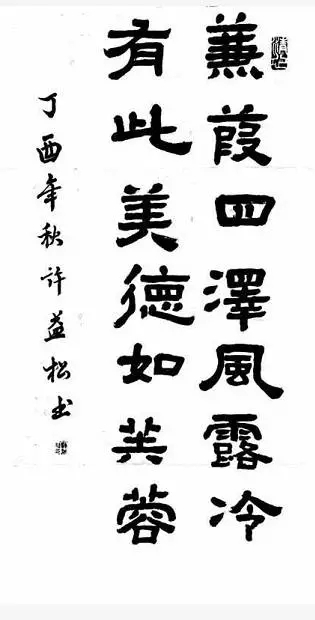 蒹葭四澤風露冷
有此美德如芙蓉
丁酉年秋许益松书